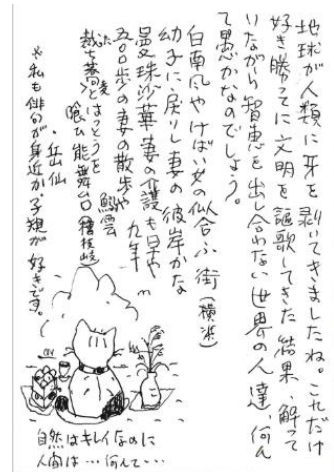 地球が人類に牙を剥いてきましたね。これだけ
好き勝ってに文明を謳歌してきた結果、解って
いながら智恵を出し合わない世界の人達、何ん
て愚かなのでしょう。
白南風やけばい女の似合ふ街(横浜)
幼子に戻りし妻の彼岸かな
曼珠沙華妻の介護も早や九年
五〇〇歩の妻の散歩や鰯雲
裁ち蕎麦とはっとうを
喰ひ能舞台(檜枝岐)
・岳仙
※私も俳句が身近か。子規が好きです。
自然はキレイなのに
人間は…何んて…